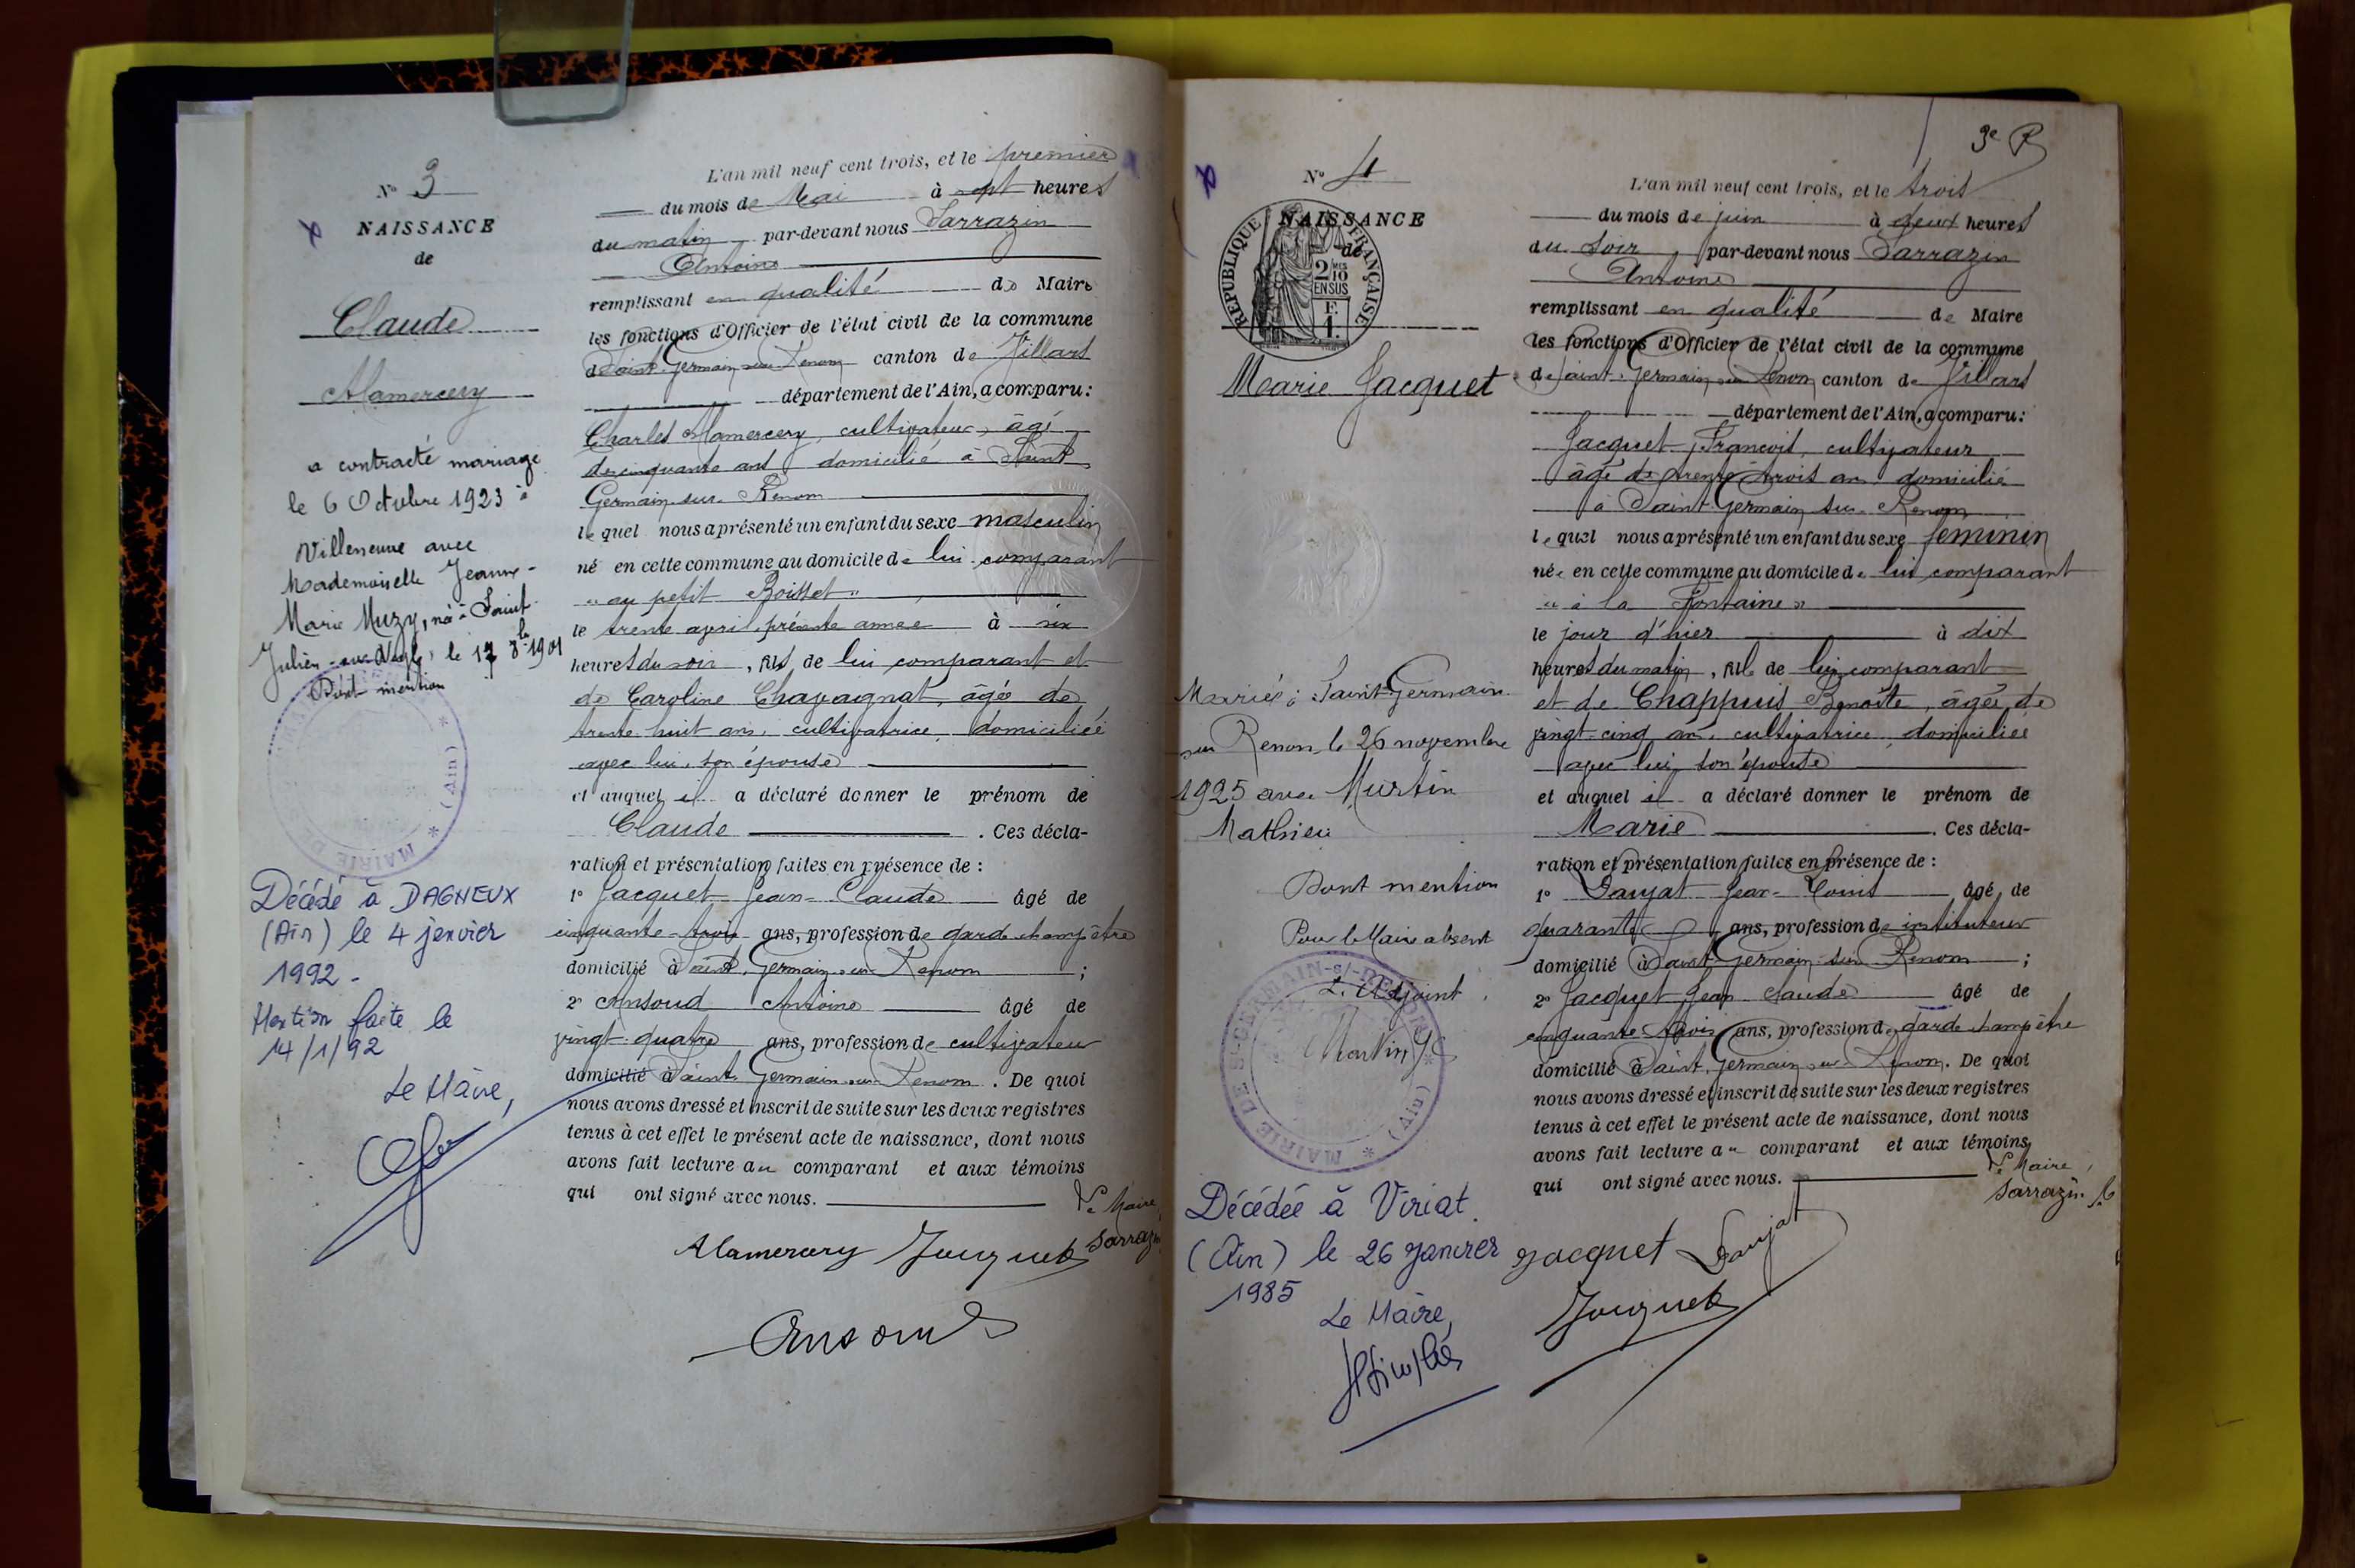 N° 3
NAISSANCE
de
Claude
Alamercery
a contracté mariage
le 6 Octobre 1923 à
Villeneuve avec
Mademoiselle Jeanne-
Marie Muzy, née à Saint
Julien-sur-Veyle, le 17 8bre 1901
Dont mention
MAIRIE DE * (Ain) *
Décédé à DAGNEUX
(Ain) le 4 janvier
1992 -
Mention faite le
14/1/92
Le Maire,
L'an mil neuf cent trois, et le premier
du mois de Mai à sept heures
du matin par-devant nous Sarrazin
Antoine
remplissant en qualité de Maire
les fonctions d'Officier de l'état civil de la commune
de Saint-Germain-sur-Renom canton de Villars
département de l'Ain, a comparu :
Charles Alamercery, cultivateur, âgé
de cinquante ans domicilié à Saint
Germain-sur-Renom
lequel nous a présenté un enfant du sexe masculin
né en cette commune au domicile de lui comparant
"au petit Boisset"
le trente avril, présente année à six
heures du soir, fils de lui comparant et
de Caroline Chavagnat, âgée de
trente huit ans, cultivatrice, domiciliée
avec lui, son épouse
et auquel il a déclaré donner le prénom de
Claude . Ces décla-
ration et présentation faites en présence de :
1° Jacquet Jean-Claude âgé de
cinquante-trois ans, profession de garde champêtre
domicilié à Saint-Germain-sur-Renom ;
2° Ansoud Antoine âgé de
vingt-quatre ans, profession de cultivateur
domicilié à Saint-Germain-sur-Renom . De quoi
nous avons dressé et inscrit de suite sur les deux registres
tenus à cet effet le présent acte de naissance, dont nous
avons fait lecture au comparant et aux témoins
qui ont signé avec nous.
Le Maire,
Sarrazin
Alamercery Jacquet
Ansoud
3e R
N° 4
NAISSANCE
de
RÉPUBLIQUE FRANÇAISE
2/10 MES
EN SUS
F.
1.
Marie Jacquet
Mariée à Saint-Germain
sur Renon le 26 novembre
1925 avec Murtin
Mathieu
Dont mention
Pour le Maire absent
L'Adjoint
MAIRIE DE St-GERMAIN-s/-RENON * (Ain) *
Décédée à Viriat
(Ain) le 26 janvier
1985
Le Maire,
L'an mil neuf cent trois, et le trois
du mois de juin à deux heures
du soir par-devant nous Sarrazin
Antoine
remplissant en qualité de Maire
les fonctions d'Officier de l'état civil de la commune
de Saint-Germain-sur-Renom canton de Villars
département de l'Ain, a comparu :
Jacquet François, cultivateur
âgé de trente-trois ans, domicilié
à Saint-Germain-sur-Renom
lequel nous a présenté un enfant du sexe féminin
née en cette commune au domicile de lui comparant
"à la Fontaine"
le jour d'hier à dix
heures du matin, fille de lui comparant
et de Chappuis Benoîte, âgée de
vingt-cinq ans, cultivatrice, domiciliée
avec lui, son épouse
et auquel il a déclaré donner le prénom de
Marie . Ces décla-
ration et présentation faites en présence de :
1° Daujat Jean-Louis âgé de
quarante ans, profession de instituteur
domicilié à Saint-Germain-sur-Renom ;
2° Jacquet Jean Claude âgé de
cinquante-trois ans, profession de garde champêtre
domicilié à Saint-Germain-sur-Renom. De quoi
nous avons dressé et inscrit de suite sur les deux registres
tenus à cet effet le présent acte de naissance, dont nous
avons fait lecture au comparant et aux témoins
qui ont signé avec nous.
Le Maire,
Sarrazin
Jacquet Daujat
Jacquet